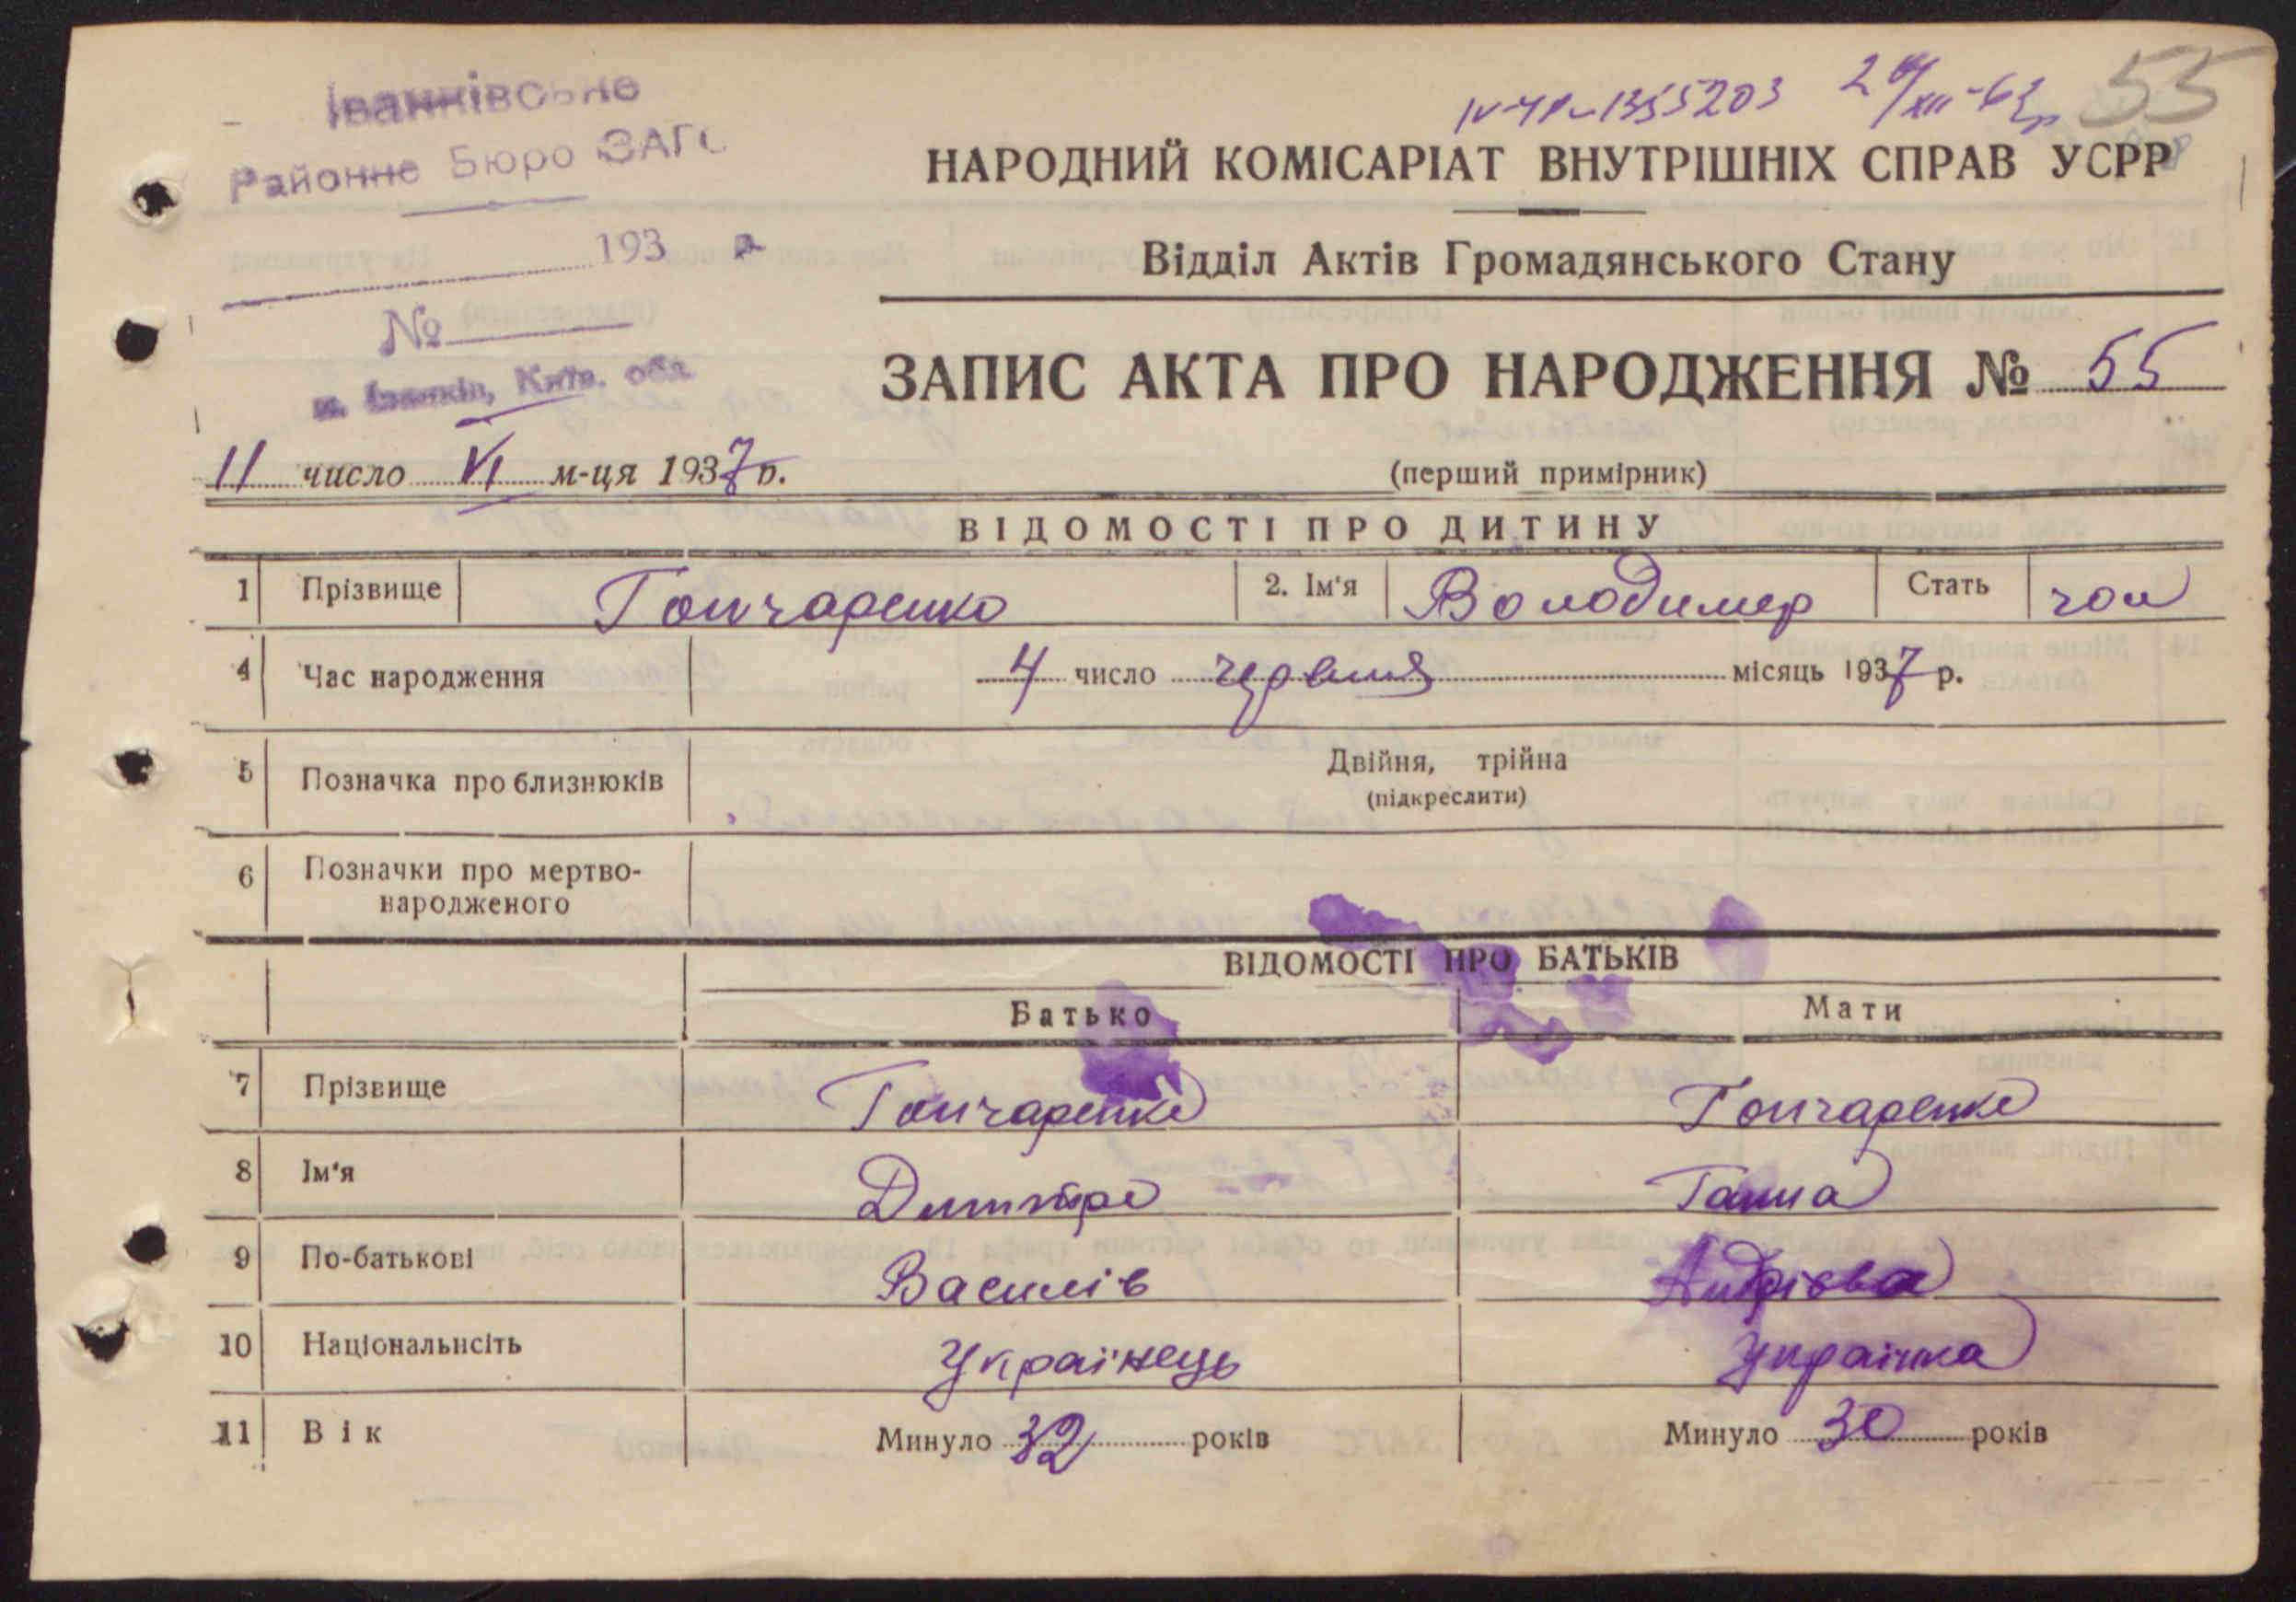 55
28/XII-63р
Районне Бюро ЗАГС
НАРОДНИЙ КОМІСАРІАТ ВНУТРІШНІХ СПРАВ УСРР
193 р
Відділ Актів Громадянського Стану
№
м. Іванків, Київ. обл
ЗАПИС АКТА ПРО НАРОДЖЕННЯ № 55
11 число VI м-ця 1937 р.
(перший примірник)
ВІДОМОСТІ ПРО ДИТИНУ
1 Прізвище Гончаренко 2. Ім'я Володимер Стать чол
4 Час народження 4 число червня місяць 1937 р.
5 Позначка про близнюків Двійня, трійна
(підкреслити)
6 Позначки про мертво-
народженого
ВІДОМОСТІ ПРО БАТЬКІВ
Батько Мати
7 Прізвище Гончаренко Гончаренко
8 Ім'я Дмитро Ганна
9 По-батькові Василів Андрієва
10 Національнсіть Українець Українка
11 Вік Минуло 32 років Минуло 30 років